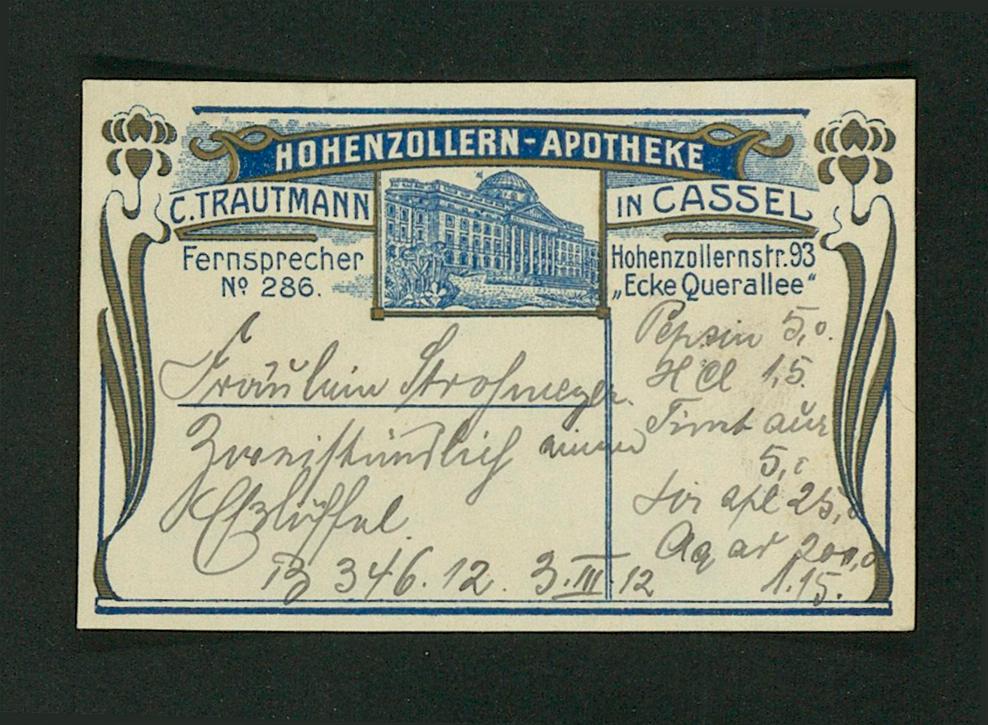 HOHENZOLLERN-APOTHEKE
C. TRAUTMANN
IN CASSEL
Fernsprecher
Nº 286.
Hohenzollernstr. 93
„Ecke Querallee“
Fräulein Strohmeyer.
Zweistündlich einen
Eßlöffel.
346. 12. 3.III.12
Pepsin 5,0.
HCl 1,5.
Tinct aur
5,0
Sir 25,0
Aq ad 200,0
1.15.